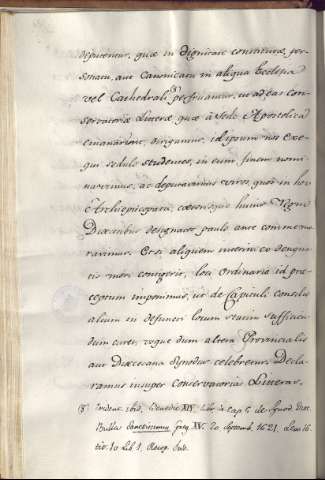 deputentur, quæ in dignitate constitutæ, per-
sonatu, aut Canonicatu in aliqua Ecclesia
vel Cathedrali (8) perfruantur, ut ad eas con-
servatoriæ Litteræ, quæ à Sede Apostolica
emanarint, dirigantur, idipsum nos exe-
qui sedulo studentes, in eum finem nomi-
navimus, ac deputavimus viros, quos in hoc
Archiepiscopatu, cæterisque hujus Regni
Diæcesibus designatos paulo ante comme-
ravimus. Et si aliquem interim ex design-
tis mori contigerit, loci Ordinario id præ-
ceptum imponimus, ut de Capituli consilio
alium in defuncti locum statim sufficien-
dum curet, usque dum altera Provincialis
aut Diæcesana Synodus celebretur. Decla-
ramus insuper conservatorias Litteras.
(8) Trident. ibid, Benedic. XIV. Lib. 4. cap. 5. de Synod. Diæc.
Bulla Sanctissimus Greg. XV. 20 Septemb. 1621.
tit. 10 Lib. 1. Recop. Ind.